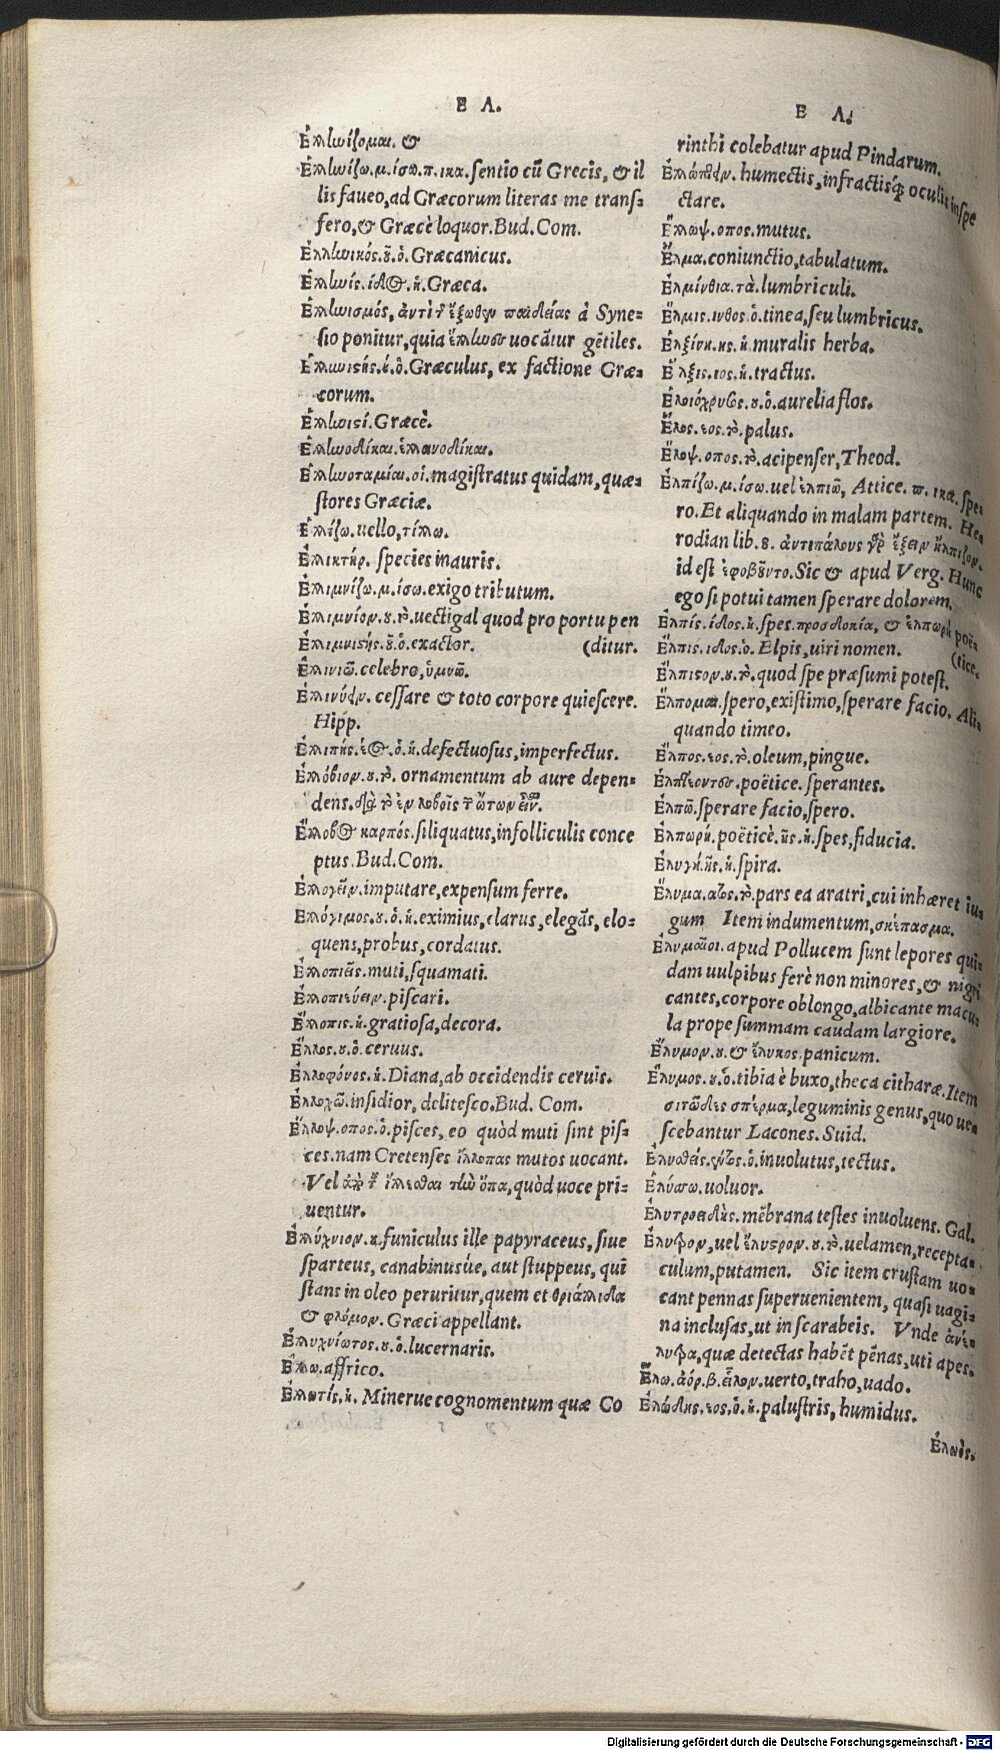 Ε Λ.
Ἑλληνίζομαι. &
Ἑλληνίζω.μ.ίσω.π.ικα.sentio cũ Grecis, & il
lis faueo,ad Græcorum literas me transf-
fero,& Græcè loquor.Bud.Com.
Ἑλληνικός.ȣ̃.ὁ.Græcanicus.
Ἑλληνίς.ίδος.ἡ.Græca.
Ἑλληνισμός, ἀντὶ τ̃ ἔξωθεν παιδείας à Syne-
sio ponitur,quia ἕλληνας uocãtur gẽtiles.
Ἑλληνιστής.ȣ̃.ὁ.Græculus, ex factione Græ-
corum.
Ἑλληνιστί.Græcè.
Ἑλληνοδίκαι.ἑλλανοδίκαι.
Ἑλληνοταμίαι.οἱ.magistratus quidam, quæ-
stores Græciæ.
uello,τίλλω.
Ἑλλικτήρ. species inauris.
Ἐλλιμνίζω.μ.ίσω.exigo tributum.
Ἐλλιμνίον.ȣ.τὸ.uectigal quod pro portu pen
Ἐλλιμνιστής.ȣ̃.ὁ.exactor. (ditur.
Ἐλλινιῶ.celebro,ὑμνῶ.
Ἐλλινύειν. cessare & toto corpore quiescere.
Hipp.
Ἐλλιπής.έος.ὁ.ἡ.defectuosus,imperfectus.
Ἐλλόβιον.ȣ.τὸ. ornamentum ab aure depen-
dens,διὰ τὸ ἐν λοβοῖς τ̃ ὤτων εἶναι.
Ἔλλοβος καρπός.siliquatus,in folliculis conce
ptus.Bud.Com.
Ἐλλογεῖν.imputare,expensum ferre.
Ἐλλόγιμος.ȣ.ὁ.ἡ.eximius,clarus,elegãs,elo-
quens,probus,cordatus.
Ἐλλοπιᾶς.muti,squamati.
Ἐλλοπιεύειν.piscari.
Ἔλλοπις.ἡ.gratiosa,decora.
Ἑλλός.ȣ.ὁ.ceruus.
Ἑλλοφόνος.ἡ.Diana,ab occidendis ceruis.
Ἐλλοχῶ.insidior, delitesco.Bud. Com.
Ἔλλοψ.οπος.ὁ.pisces, eo quòd muti sint pis-
ces.nam Cretenses ἔλλοπας mutos uocant.
Vel ἀπὸ τ̃ ἴλλεσθαι τὴν ὄπα,quòd uoce pri-
uentur.
Ἐλλύχνιον.ȣ.funiculus ille papyraceus, siue
sparteus, canabinusúe, aut stuppeus, qui
stans in oleo peruritur,quem et θρυαλλίδα
& φλόμον.Græci appellant.
Ἐλλυχνίωτος.ȣ.ὁ.lucernaris.
affrico.
Ἑλλωτίς.ἡ. Mineruę cognomentum quæ Co
Ε Λ.
rinthi colebatur apud Pindarum.
humectis,infractisq́; oculis inspe
ctare.
Ἔλλωψ.οπος.mutus.
Ἕλμα.coniunctio,tabulatum.
Ἑλμίνθια.τὰ.lumbriculi.
Ἕλμις.ινθος.ὁ.tinea,seu lumbricus.
Ἑλξίνη.ης.ἡ.muralis herba.
Ἕλξις.ιος.ἡ.tractus.
Ἑλειόχρυσος.ȣ.ὁ.aurelia flos.
Ἕλος.εος.τὸ.palus.
Ἔλοψ.οπος.τὸ.acipenser, Theod.
Ἐλπίζω.μ.ίσω.uel ἐλπιῶ, Attice. π. ικα. spe-
ro.Et aliquando in malam partem. He-
rodian lib.8. ἀντιπάλους γὰρ ἕξειν ἤλπιζον.
id est ἐφοβοῦντο.Sic & apud Verg. Hunc
ego si potui tamen sperare dolorem.
Ἐλπίς.ίδος.ἡ.spes.προσδοκία, & ἐλπωρὴ poë-
Ἔλπις.ιδος.ὁ. Elpis,uiri nomen. (tice.
Ἔλπιστον.ȣ.τὸ.quod spe præsumi potest.
Ἔλπομαι.spero,existimo,sperare facio. Ali-
quando timeo.
Ἔλπος.εος.τὸ.oleum,pingue.
poëtice.sperantes.
Ἐλπῶ.sperare facio,spero.
Ἐλπωρή.poëticè.ῆς.ἡ.spes,fiducia.
Ἐλυγή.ῆς.ἡ.spira.
Ἔλυμα.ατος.τὸ.pars ea aratri,cui inhæret iu-
gum Item indumentum,σκέπασμα.
Ἐλυμαῖοι.apud Pollucem sunt lepores qui-
dam uulpibus ferè non minores,& nigri
cantes,corpore oblongo,albicante macu-
la prope summam caudam largiore.
Ἔλυμον.ȣ.& ἔλυκος.panicum.
Ἔλυμος.ȣ.ὁ.tibia è buxo,theca citharæ.Item
σιτῶδες σπέρμα,leguminis genus,quo ue-
scebantur Lacones.Suid.
Ἐλυσθείς.έντος.ὁ.inuolutus,tectus.
Ἐλύσσω.uoluor.
Ἐλυτροειδής.mẽbrana testes inuoluens. Gal.
Ἔλυτρον,uel ἔλυστρον.ȣ.τὸ.uelamen,recepta-
culum,putamen. Sic item crustam uo-
cant pennas superuenientem, quasi uagi-
na inclusas,ut in scarabeis. Vnde ἀνέ-
λυτρα,quæ detectas habẽt pẽnas,uti apes.
Ἕλω.ἀόρ.β.εἷλον.uerto,traho,uado.
Ἑλώδης.εος.ὁ.ἡ.palustris, humidus.
Digitalisierung gefördert durch die Deutsche Forschungsgemeinschaft - DFG